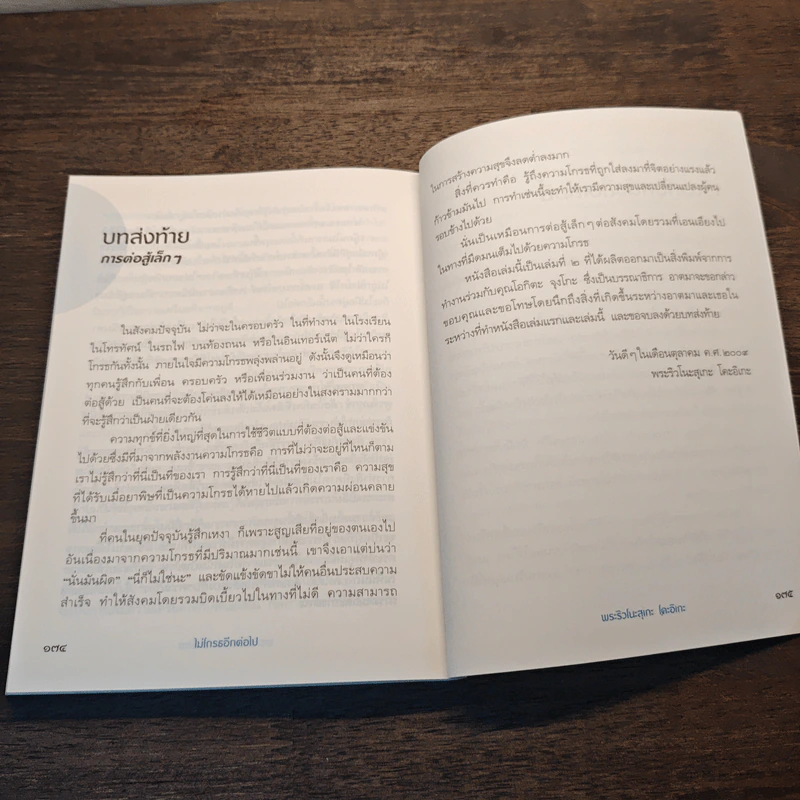 บทส่งท้าย
การต่อสู้เล็ก ๆ
ในสังคมปัจจุบัน ไม่ว่าจะในครอบครัว ในที่ทำงาน ในโรงเรียน
ในโทรทัศน์ ในรถไฟ บนท้องถนน หรือในอินเทอร์เน็ต ไม่ว่าใครก็
โกรธกันทั้งนั้น ภายในใจมีความโกรธพลุ่งพล่านอยู่ ดังนั้นจึงดูเหมือนว่า
ทุกคนรู้สึกกับเพื่อน ครอบครัว หรือเพื่อนร่วมงาน ว่าเป็นคนที่ต้อง
ต่อสู้ด้วย เป็นคนที่จะต้องโค่นลงให้ได้เหมือนอย่างในสงครามมากกว่า
ที่จะรู้สึกว่าเป็นฝ่ายเดียวกัน
ความทุกข์ที่ยิ่งใหญ่ที่สุดในการใช้ชีวิตแบบที่ต้องต่อสู้และแข่งขัน
ไปด้วยซึ่งมีที่มาจากพลังงานความโกรธคือ การที่ไม่ว่าจะอยู่ที่ไหนก็ตาม
เราไม่รู้สึกว่าที่นี่เป็นที่ของเรา การรู้สึกว่าที่นี่เป็นที่ของเราคือ ความสุข
ที่ได้รับเมื่อยาพิษที่เป็นความโกรธได้หายไปแล้วเกิดความผ่อนคลาย
ขึ้นมา
ที่คนในยุคปัจจุบันรู้สึกเหงา ก็เพราะสูญเสียที่อยู่ของตนเองไป
อันเนื่องมาจากความโกรธที่มีปริมาณมากเช่นนี้ เขาจึงเอาแต่บ่นว่า
“นั่นมันผิด” “นี่ก็ไม่ใช่นะ” และขัดแข้งขัดขาไม่ให้คนอื่นประสบความ
สำเร็จ ทำให้สังคมโดยรวมบิดเบี้ยวไปในทางที่ไม่ดี ความสามารถ
๑๗๔
ไม่โกรธอีกต่อไป
ในการสร้างความสุขจึงลดต่ำลงมาก
สิ่งที่ควรทำคือ รู้ถึงความโกรธที่ถูกใส่ลงมาที่จิตอย่างแรงแล้ว
ก้าวข้ามมันไป การทำเช่นนี้จะทำให้เรามีความสุขและเปลี่ยนแปลงผู้คน
รอบข้างไปด้วย
นั่นเป็นเหมือนการต่อสู้เล็ก ๆ ต่อสังคมโดยรวมที่เอนเอียงไป
ในทางที่มืดมนเต็มไปด้วยความโกรธ
หนังสือเล่มนี้เป็นเล่มที่ ๒ ที่ได้ผลิตออกมาเป็นสิ่งพิมพ์จากการ
ทำงานร่วมกับคุณโอกิตะ จุงโกะ ซึ่งเป็นบรรณาธิการ อาตมาจะขอกล่าว
ขอบคุณและขอโทษโดยนึกถึงสิ่งที่เกิดขึ้นระหว่างอาตมาและเธอใน
ระหว่างที่ทำหนังสือเล่มแรกและเล่มนี้ และขอจบลงด้วยบทส่งท้าย
วันดี ๆ ในเดือนตุลาคม ค.ศ. ๒๐๐๙
พระริวโนะสุเกะ โคะอิเกะ
๑๗๕
พระริวโนะสุเกะ โคะอิเกะ